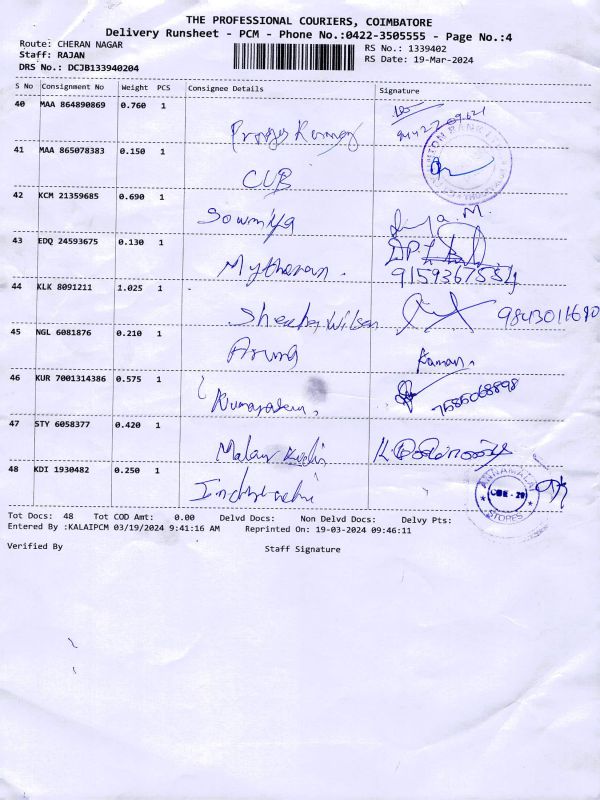 THE PROFESSIONAL COURIERS, COIMBATORE
Delivery Runsheet - PCM - Phone No.:0422-3505555 - Page No.:4
Route: CHERAN NAGAR
Staff: RAJAN
DRS No.: DCJB133940204
RS No.: 1339402
RS Date: 19-Mar-2024
S No Consignment No Weight PCS Consignee Details Signature
40 MAA 864890869 0.760 1
41 MAA 865078383 0.150 1
CUB
42 KCM 21359685 0.690 1
Sowmiya
43 EDQ 24593675 0.130 1
Mytharan.
44 KLK 8091211 1.025 1
Wilson
45 NGL 6081876 0.210 1
Arung Raman.
46 KUR 7001314386 0.575 1
47 STY 6058377 0.420 1
Malar
48 KDI 1930482 0.250 1
ANNAMALAI
CBE - 29
STORES
Tot Docs: 48 Tot COD Amt: 0.00 Delvd Docs: Non Delvd Docs: Delvy Pts:
Entered By :KALAIPCM 03/19/2024 9:41:16 AM Reprinted On: 19-03-2024 09:46:11
Verified By Staff Signature